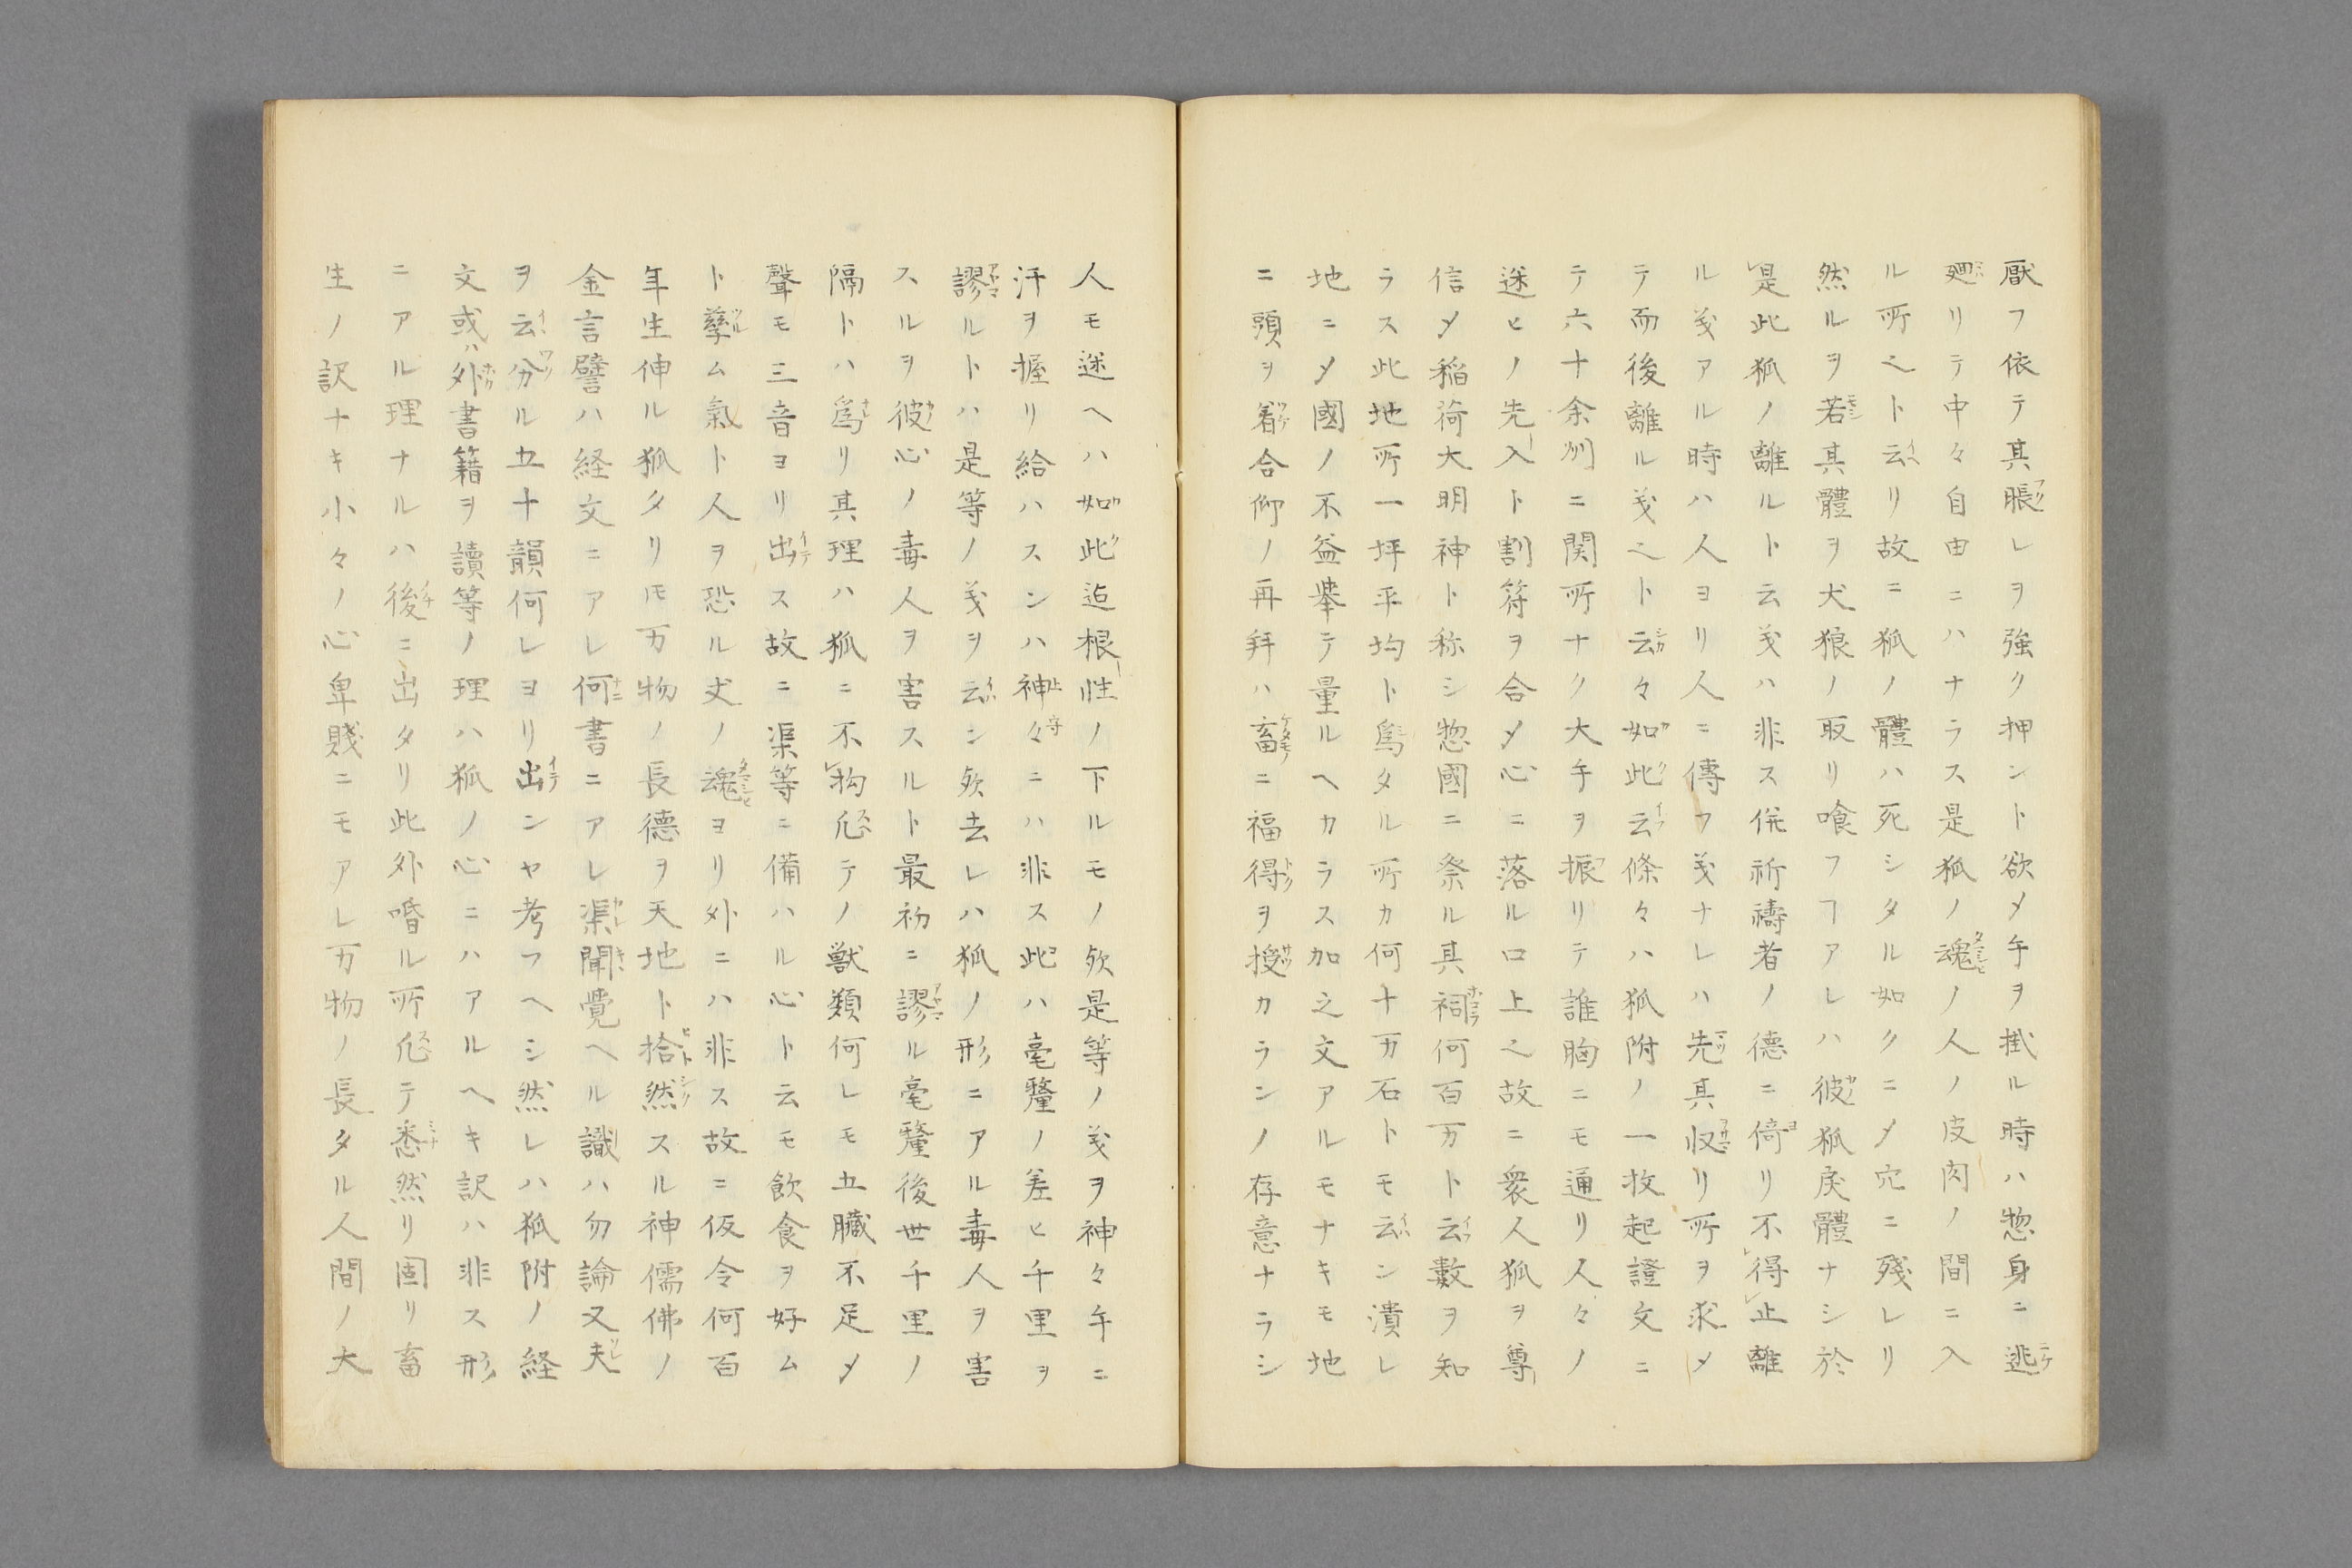 厭フ依テ其脹レヲ強ク押ント欲メ手ヲ掛ル時ハ惣身ニ逃
廻リテ中々自由ニハナラス是狐ノ魂ノ人ノ皮肉ノ間ニ入
ル所ヘト云リ故ニ狐ノ體ハ死シタル如クニメ穴ニ残レリ
然ルヲ若其體ヲ犬狼ノ取リ喰フヿアレハ彼狐戻體ナシ於
是此狐ノ離ルト云義ハ非ス併祈禱者ノ德ニ倚リ不得止離
ル義アル時ハ人ヨリ人ニ傳フ義ナレハ先其収リ所ヲ求メ
テ而後離ル義之ト云々如此云條々ハ狐附ノ一枚起證文ニ
テ六十余州ニ関所ナク大手ヲ振リテ誰胸ニモ通リ人々ノ
迷ヒノ先入ト割符ヲ合メ心ニ落ル口上之故ニ衆人狐ヲ尊
信メ稲荷大明神ト称シ惣國ニ祭ル其祠何百万ト云數ヲ知
ラス此地所一坪平均ト爲タル所カ何十万石トモ云ン潰レ
地ニメ國ノ不益挙テ量ルヘカラス加之文アルモナキモ地
ニ頭ヲ着合仰ノ再拜ハ畜ニ福得ヲ授カランノ存意ナラシ
人モ迷ヘハ如此迄根性ノ下ルモノ欤是等ノ義ヲ神々手ニ
汗ヲ握リ給ハスンハ神々ニハ非ス此ハ毫釐ノ差ヒ千里ヲ
謬ルトハ是等ノ義ヲ云ン欤去レハ狐ノ形ニアル毒人ヲ害
スルヲ彼心ノ毒人ヲ害スルト最初ニ謬ル毫釐後世千里ノ
隔トハ爲リ其理ハ狐ニ不拘凢テノ獣類何レモ五臓不足メ
聲モ三音ヨリ出ス故ニ渠等ニ備ハル心ト云モ飲食ヲ好ム
ト孳ム氣ト人ヲ恐ル丈ノ魂ヨリ外ニハ非ス故ニ仮令何百
年生伸ル狐タリモ万物ノ長德ヲ天地ト拾然スル神儒佛ノ
金言譬ハ経文ニアレ何書ニアレ渠聞覺ヘル識ハ勿論又夫
ヲ云分ル五十韻何レヨリ出ンヤ考フヘシ然レハ狐附ノ経
文或ハ外書籍ヲ讀等ノ理ハ狐ノ心ニハアルヘキ訳ハ非ス形
ニアル理ナルハ後ニ出タリ此外㗃ル所凢テ悉然リ固リ畜
生ノ訳ナキ小々ノ心卑賤ニモアレ万物ノ長タル人間ノ大